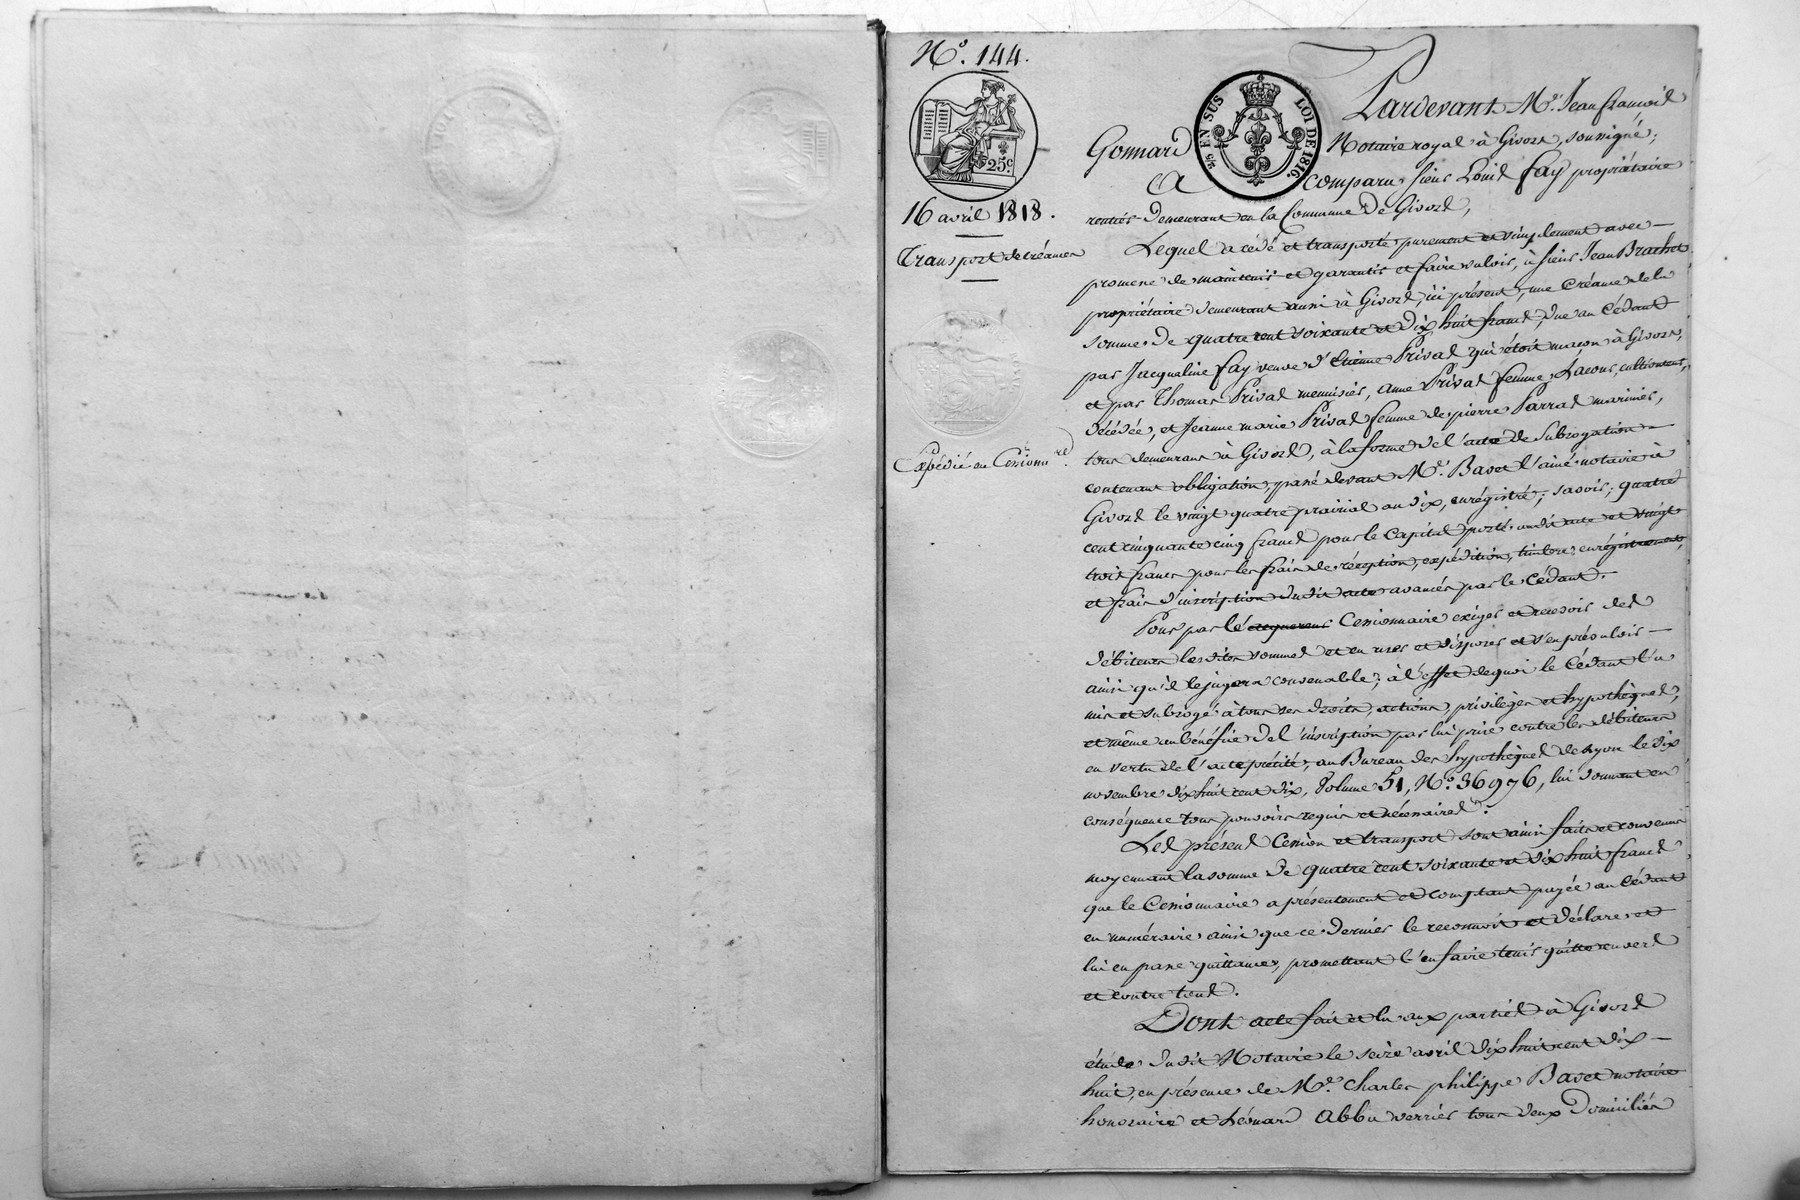 N.º 144.
25.c
EN SUS
LOI DE 1816.
16 avril 1818.
Transport de créance
Expédié au Cessionn.re
Pardevant M.e Jean françois
Gonnard Notaire royal à Givors, soussigné;
A comparu sieur Louis Fay propriétaire
rentier demeurant en la Commune de Givors,
Lequel a cédé et transporté purement et simplement avec
promesse de maintenir et garantir et faire valoir, à sieur Jean Brachet
propriétaire demeurant aussi à Givors, ici présent, une Créance de la
somme de quatre cent soixante et dix huit francs, due au Cédant
par Jacqueline Fay veuve d'Etienne Prival qui étoit maçon à Givors,
et par Thomas Prival menuisier, anne Prival femme Lacour, cultivateur,
décédée, et Jeanne marie Prival femme de pierre Parrat marinier,
tous demeurans à Givors, à la forme de l'acte de Subrogation
contenant obligation, passé devant M.e Bavet l'ainé notaire à
Givors le vingt quatre prairial an dix, enrégistré; savoir; quatre
cent cinquante cinq francs pour le Capital porté audit acte et vingt
trois francs pour les frais de réception, expédition, timbre, enrégistrement,
et frais d'inscription dudit acte avancés par le Cédant.
Pour par le acquereur Cessionnaire exiger et recevoir des
débiteurs lesdites sommes et en user et disposer et s'en prévaloir
ainsi qu'il le jugera convenable; à l'effet de quoi le Cédant l'a
mis et subrogé à tous ses droits, actions, privilèges et hypothèques,
et même au bénéfice de l'inscription par lui prise contre les débiteurs
en vertu de l'acte précité, au Bureau des hypothèques de Lyon le dix
novembre dix huit cent dix, Volume 51, N.º 36976, lui donnant en
conséquence tous pouvoirs requis et nécessaires.
Les présens Cession et transport sont ainsi faits et convenus
moyennant la somme de quatre cent soixante et dix huit francs
que le Cessionnaire a présentement et comptant payée au Cédant
en numéraire ainsi que ce dernier le reconnoit et déclare et
lui en passe quittance, promettant l'en faire tenir quitte envers
et contre tous.
Dont acte fait et lu aux parties à Givors
étude dudit Notaire le seize avril dix huit cent dix
huit, en présence de M.e Charles philippe Bavet notaire
honoraire et Léonard Abba verrier tous deux Domiciliés